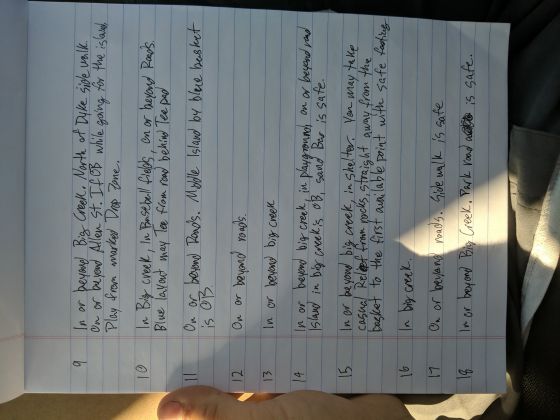 9 In or beyond Big Creek. North of Dyke side walk.
On or beyond Allen St. If OB while going for the island
Play from marked Drop Zone.
10 In Big creek, In Baseball fields, on or beyond Roads.
Blue layout may Tee from road behind Tee pad
11 On or beyond Roads. Middle Island by blue basket
is OB.
12 On or beyond roads.
13 In or beyond big creek
14 In or beyond big creek, in playground, on or beyond road
Island in big creek is OB, sand Bar is safe.
15 In or beyond big creek, in shelter. You may take
casual Relief from rocks, straight away from the
basket to the first available point with safe footing
16 In big creek.
17 On or beyond roads. Side walk is safe
18 In or beyond Big Creek. Park road is safe.